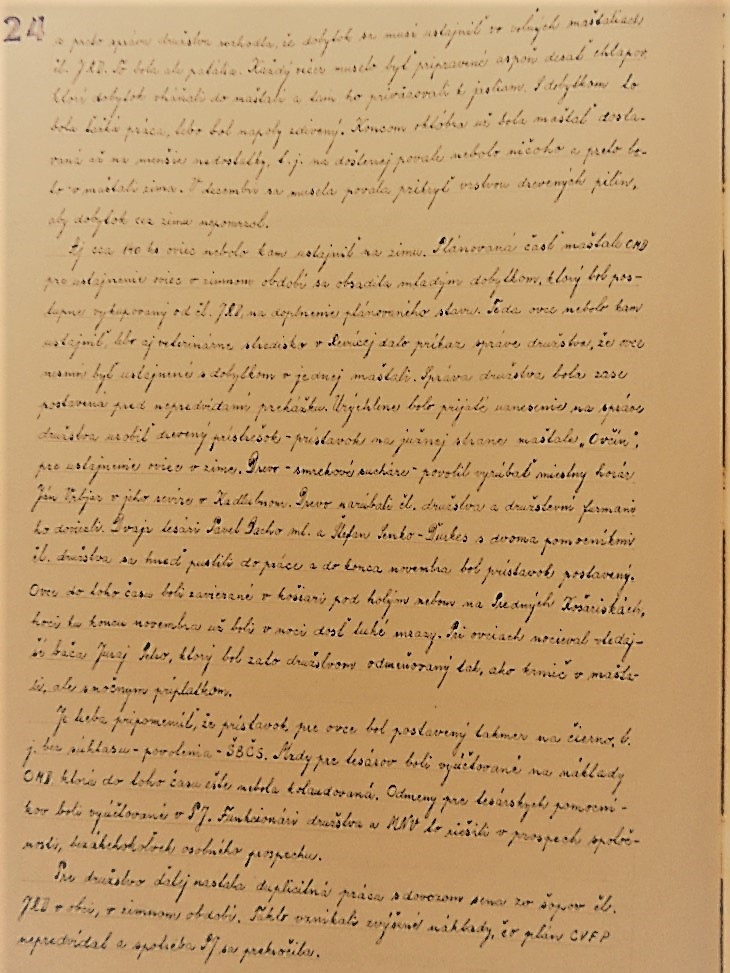 24
a preto správa družstva rozhodla, že dobytok sa musí ustajniť vo voľných maštaliach
čl. JRD. To bola ale patália. Každý večer muselo byť pripravené aspoň desať chlapov,
ktorí dobytok vháňali do maštalí a tam ho priväzovali k jasliam. S dobytkom to
bola ťažká práca, lebo bol napoly zdivený. Koncom októbra už bola maštaľ dosta-
vaná až na menšie nedostatky, t. j. na došťenej povale nebolo ničoho a preto bo-
lo v maštali zima. V decembri sa musela povala prikryť vrstvou drevených pilín,
aby dobytok cez zimu nepomrzol.
Aj cca 140 ks oviec nebolo kam ustajniť na zimu. Plánovaná časť maštale OMD
pre ustajnenie oviec v zimnom období sa obsadila mladým dobytkom, ktorý bol pos-
tupne vykupovaný od čl. JRD, na doplnenie plánovaného stavu. Teda ovce nebolo kam
ustajniť, lebo aj veterinárne stredisko v Revúcej dalo príkaz správe družstva, že ovce
nesmú byť ustajnené s dobytkom v jednej maštali. Správa družstva bola zase
postavená pred nepredvídanú prekážku. Urýchlene bolo prijaté uznesenie na správe
družstva urobiť drevený prístrešok - prístavok na južnej strane maštale "Ovčín",
pre ustajnenie oviec v zime. Drevo - smrekové sucháre - povolil vyrúbať miestny horár
Ján Vrbjar v jeho revíre v Kadlubnom. Drevo narúbali čl. družstva a družstevní furmani
ho doviezli. Dvaja tesári Pavel Bacho ml. a Štefan Senko - Ďurkes s dvoma pomocníkmi
čl. družstva sa hneď pustili do práce a do konca novembra bol prístavok postavený.
Ovce do toho času boli zavierané v košiari pod holým nebom na Predných Košariskách,
hoci ku koncu novembra už boli v noci dosť tuhé mrazy. Pri ovciach nocieval vtedaj-
ší bača Juraj Petro, ktorý bol zato družstvom odmeňovaný tak, ako krmič v mašta-
li, ale s nočným príplatkom.
Je treba pripomenúť, že prístavok pre ovce bol postavený takmer na čierno, t.
j. bez súhlasu - povolenia - ŠBČS. Mzdy pre tesárov boli vyúčtované na náklady
OMD, ktorá do toho času ešte nebola kolaudovaná. Odmeny pre tesárskych pomocní-
kov boli vyúčtované v PJ. Funkcionári družstva a MNV to riešili v prospech spoloč-
nosti, bez akéhokoľvek osobného prospechu.
Pre družstvo ďalej nastala duplicitná práca s dovozom sena zo šopov čl.
JRD v obci, v zimnom období. Takto vznikali zvýšené náklady, čo plán CVFP
nepredvídal a spotreba PJ sa prekročila.